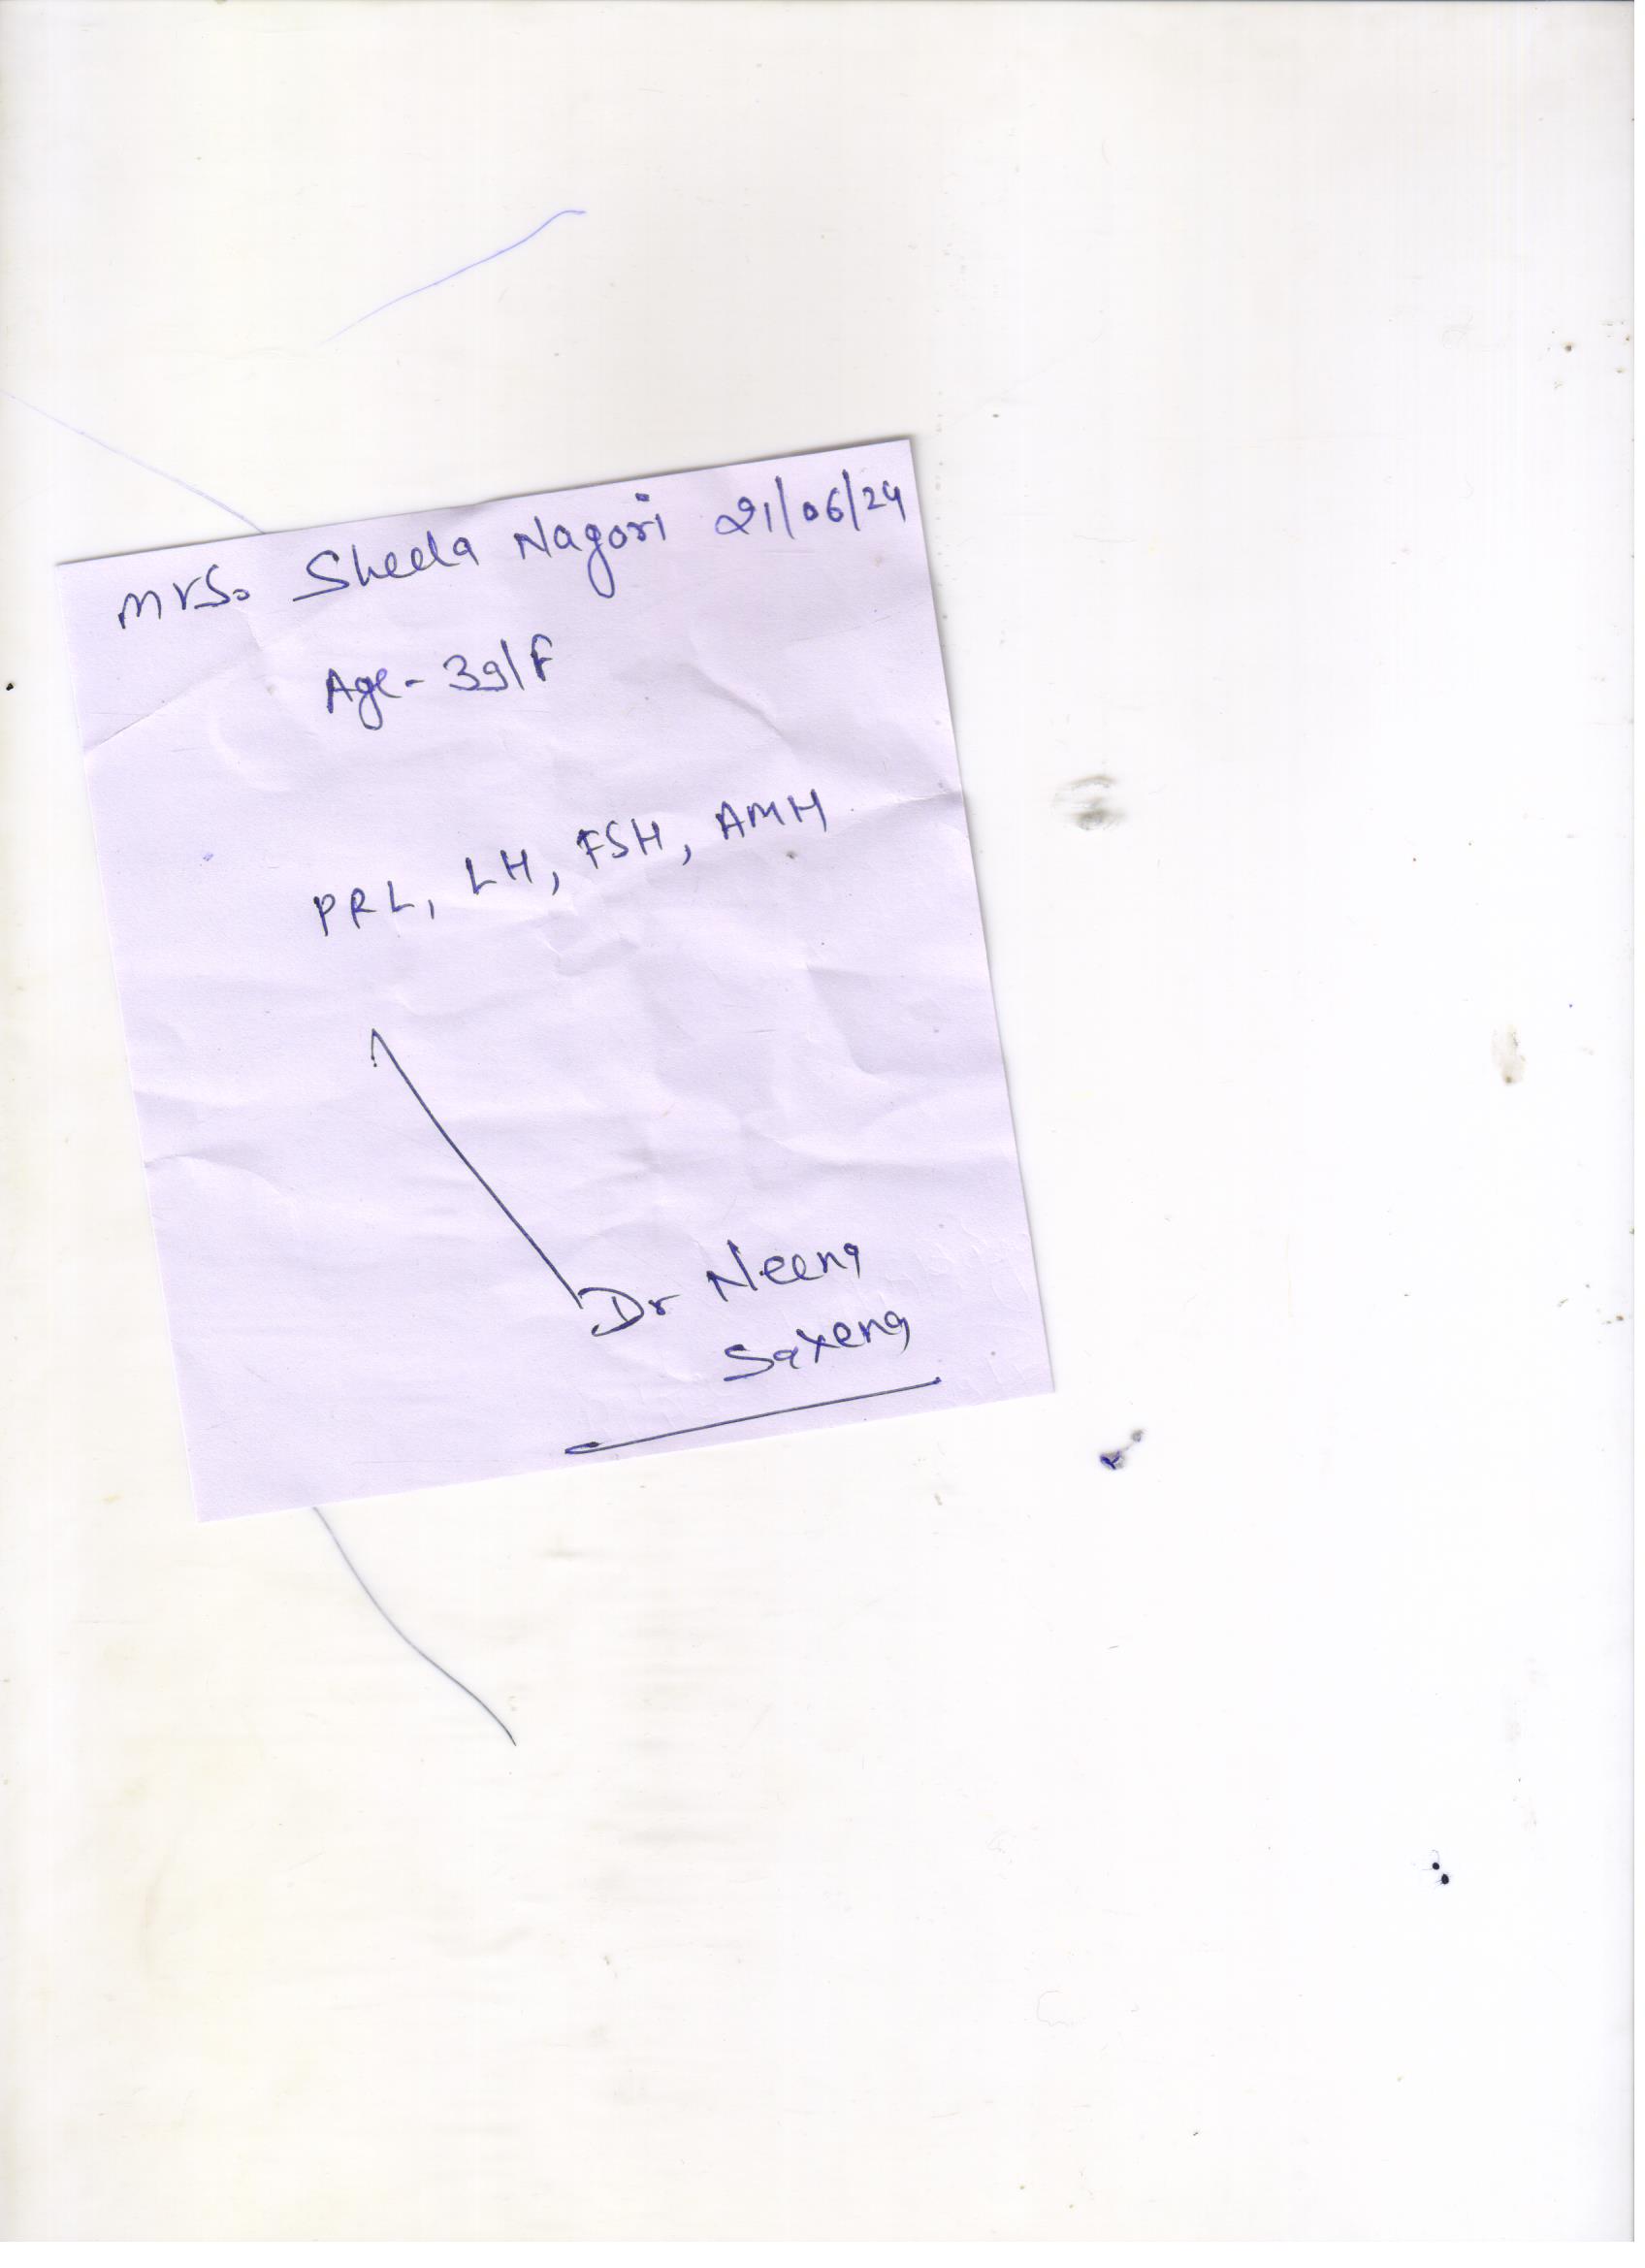 Mrs. Sheela Nagori 21/06/24
Age- 39/F
PRL, LH, FSH, AMH
Dr Neena
Saxena